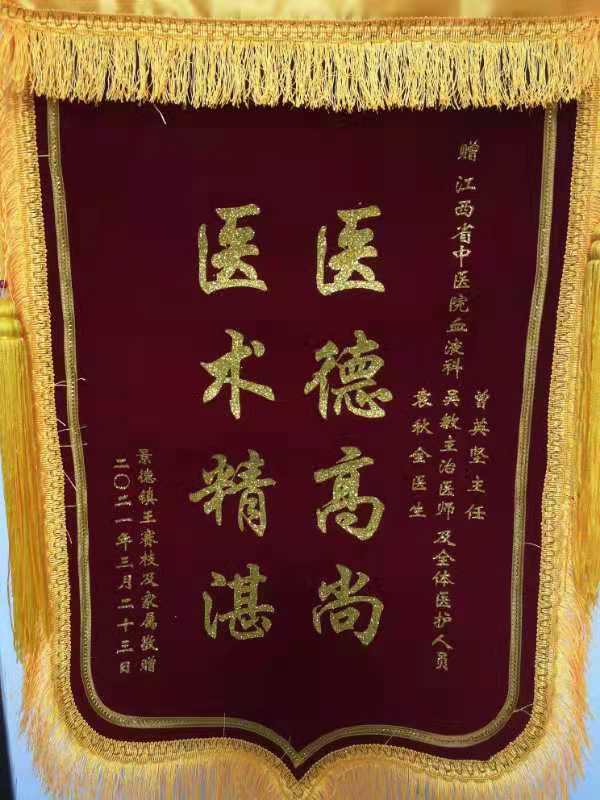 赠江西省中医院血液科
曾英坚主任
吴敏主治医师及全体医护人员
袁秋金医生
医德高尚
医术精湛
景德镇王赛枝及家属敬赠
二〇二一年三月二十三日